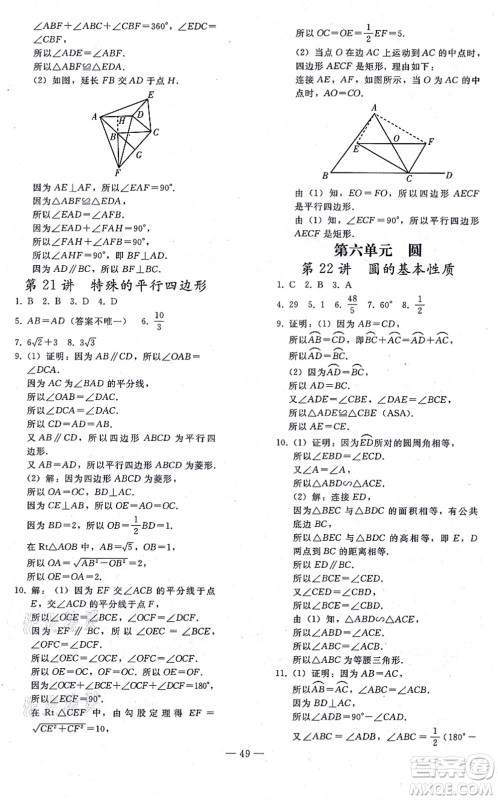 ∠ABF+∠ABC+∠CBF=360°，∠ABE=
∠CBF，
所以∠ABF=∠CBE，
所以△AFB≌△EBC.
(2) 如图，延长 FB 交 AD 于点 H.
A
E
H
D
B
C
G
F
因为 AE⊥AF，所以∠EAF=90°.
因为△AFB≌△EBC，
所以∠EAF+∠FAH=90°，
所以∠FAH+∠AFB=90°，
所以∠AHF=90°，
所以 FB⊥AD.
因为 AD∥BC，所以 FB⊥BC.
第 21 讲 特殊的平行四边形
1. B 2. B 3. D 4. D
5. AB=AD（答案不唯一） 6. 10/3
7. 6√2+3 8. 3√3
9. (1) 证明：因为 AB∥DC，所以∠OAB=
∠DCA.
因为 AC 为∠BAD 的平分线，
所以∠OAB=∠DAC，
所以∠DCA=∠DAC，
所以 CD=AD=AB.
又 AB∥DC，所以四边形 ABCD 是平行
四边形.
又 AD=AB，所以平行四边形 ABCD 为菱形.
(2) 解：因为四边形 ABCD 为菱形，
所以 OA=OC，BD⊥AC.
因为 CE⊥AB，所以 OE=AO=OC.
因为 BD=2，所以 OB=1/2BD=1.
在 Rt△AOB 中，AB=√5，OB=1，
所以 OA=√(AB²-OB²)=2，
所以 OE=OA=2.
10. 解：(1) 因为 EF 交∠ACB 的平分线于点
E，交∠ACD 的平分线于点 F，
所以∠OCE=∠BCE，∠OCF=∠DCF.
因为 EF∥BC，所以∠OEC=∠BCE，
∠OFC=∠DCF，
所以∠OEC=∠OCE，∠OFC=∠OCF，
所以 OE=OC，OF=OC，所以 OE=OF.
因为∠OCE+∠BCE+∠OCF+∠DCF=180°，
所以∠ECF=90°.
在 Rt△CEF 中，由勾股定理得 EF=
√(CE²+CF²)=10，
所以 OC=OE=1/2EF=5.
(2) 当点 O 在边 AC 上运动到 AC 中点时，
四边形 AECF 是矩形. 理由如下：
连接 AE，AF，如图所示，当 O 为 AC 的中
点时，AO=CO.
A
E
O
F
B
C
D
由 (1) 知，EO=FO，所以四边形 AECF
是平行四边形.
由 (1) 知，∠ECF=90°，所以平行四边形
AECF 是矩形.
第六单元 圆
第 22 讲 圆的基本性质
1. C 2. B 3. A
4. 29 5. 1 6. 48/5 7. 60° 8. 1/2
9. 证明：(1) 因为 AB=CD，
所以AB=CD，即AC+AD=BC+AC，
所以AD=BC.
(2) 因为AD=BC，
所以 AD=BC.
又∠ADE=∠CBE，∠DAE=∠BCE，
所以△ADE≌△CBE (ASA).
所以 AE=CE.
10. (1) 证明：因为ED所对的圆周角相等，
所以∠EBD=∠ECD.
又∠A=∠A，
所以△ABD∽△ACE.
(2) 解：连接 DE，
因为△BEC 与△BDE 的面积相等，
△BDE 与△CDE 的面积相等，所以 E，D
两点到 BC 的距离相等，
所以 ED∥BC，
所以∠BCE=∠CED.
又∠CED=∠CBD，
所以∠BCE=∠CBD.
由 (1) 知△ABD∽△ACE，
所以∠ABD=∠ACE，
所以∠ABC=∠ACB，
所以△ABC 为等腰三角形.
11. (1) 证明：因为 AB=AC，
所以AB=AC，所以∠ABC=∠ACB，
所以∠ADB=∠ACB，∠ABC=1/2(180°-
— 49 —